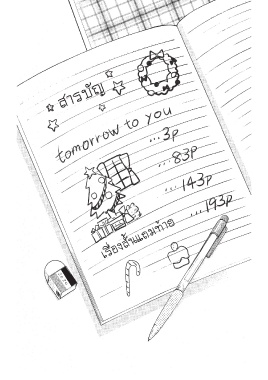 สารบัญ
tomorrow to you
...3p
...83p
...143p
เรื่องสั้นแถมท้าย ...193p